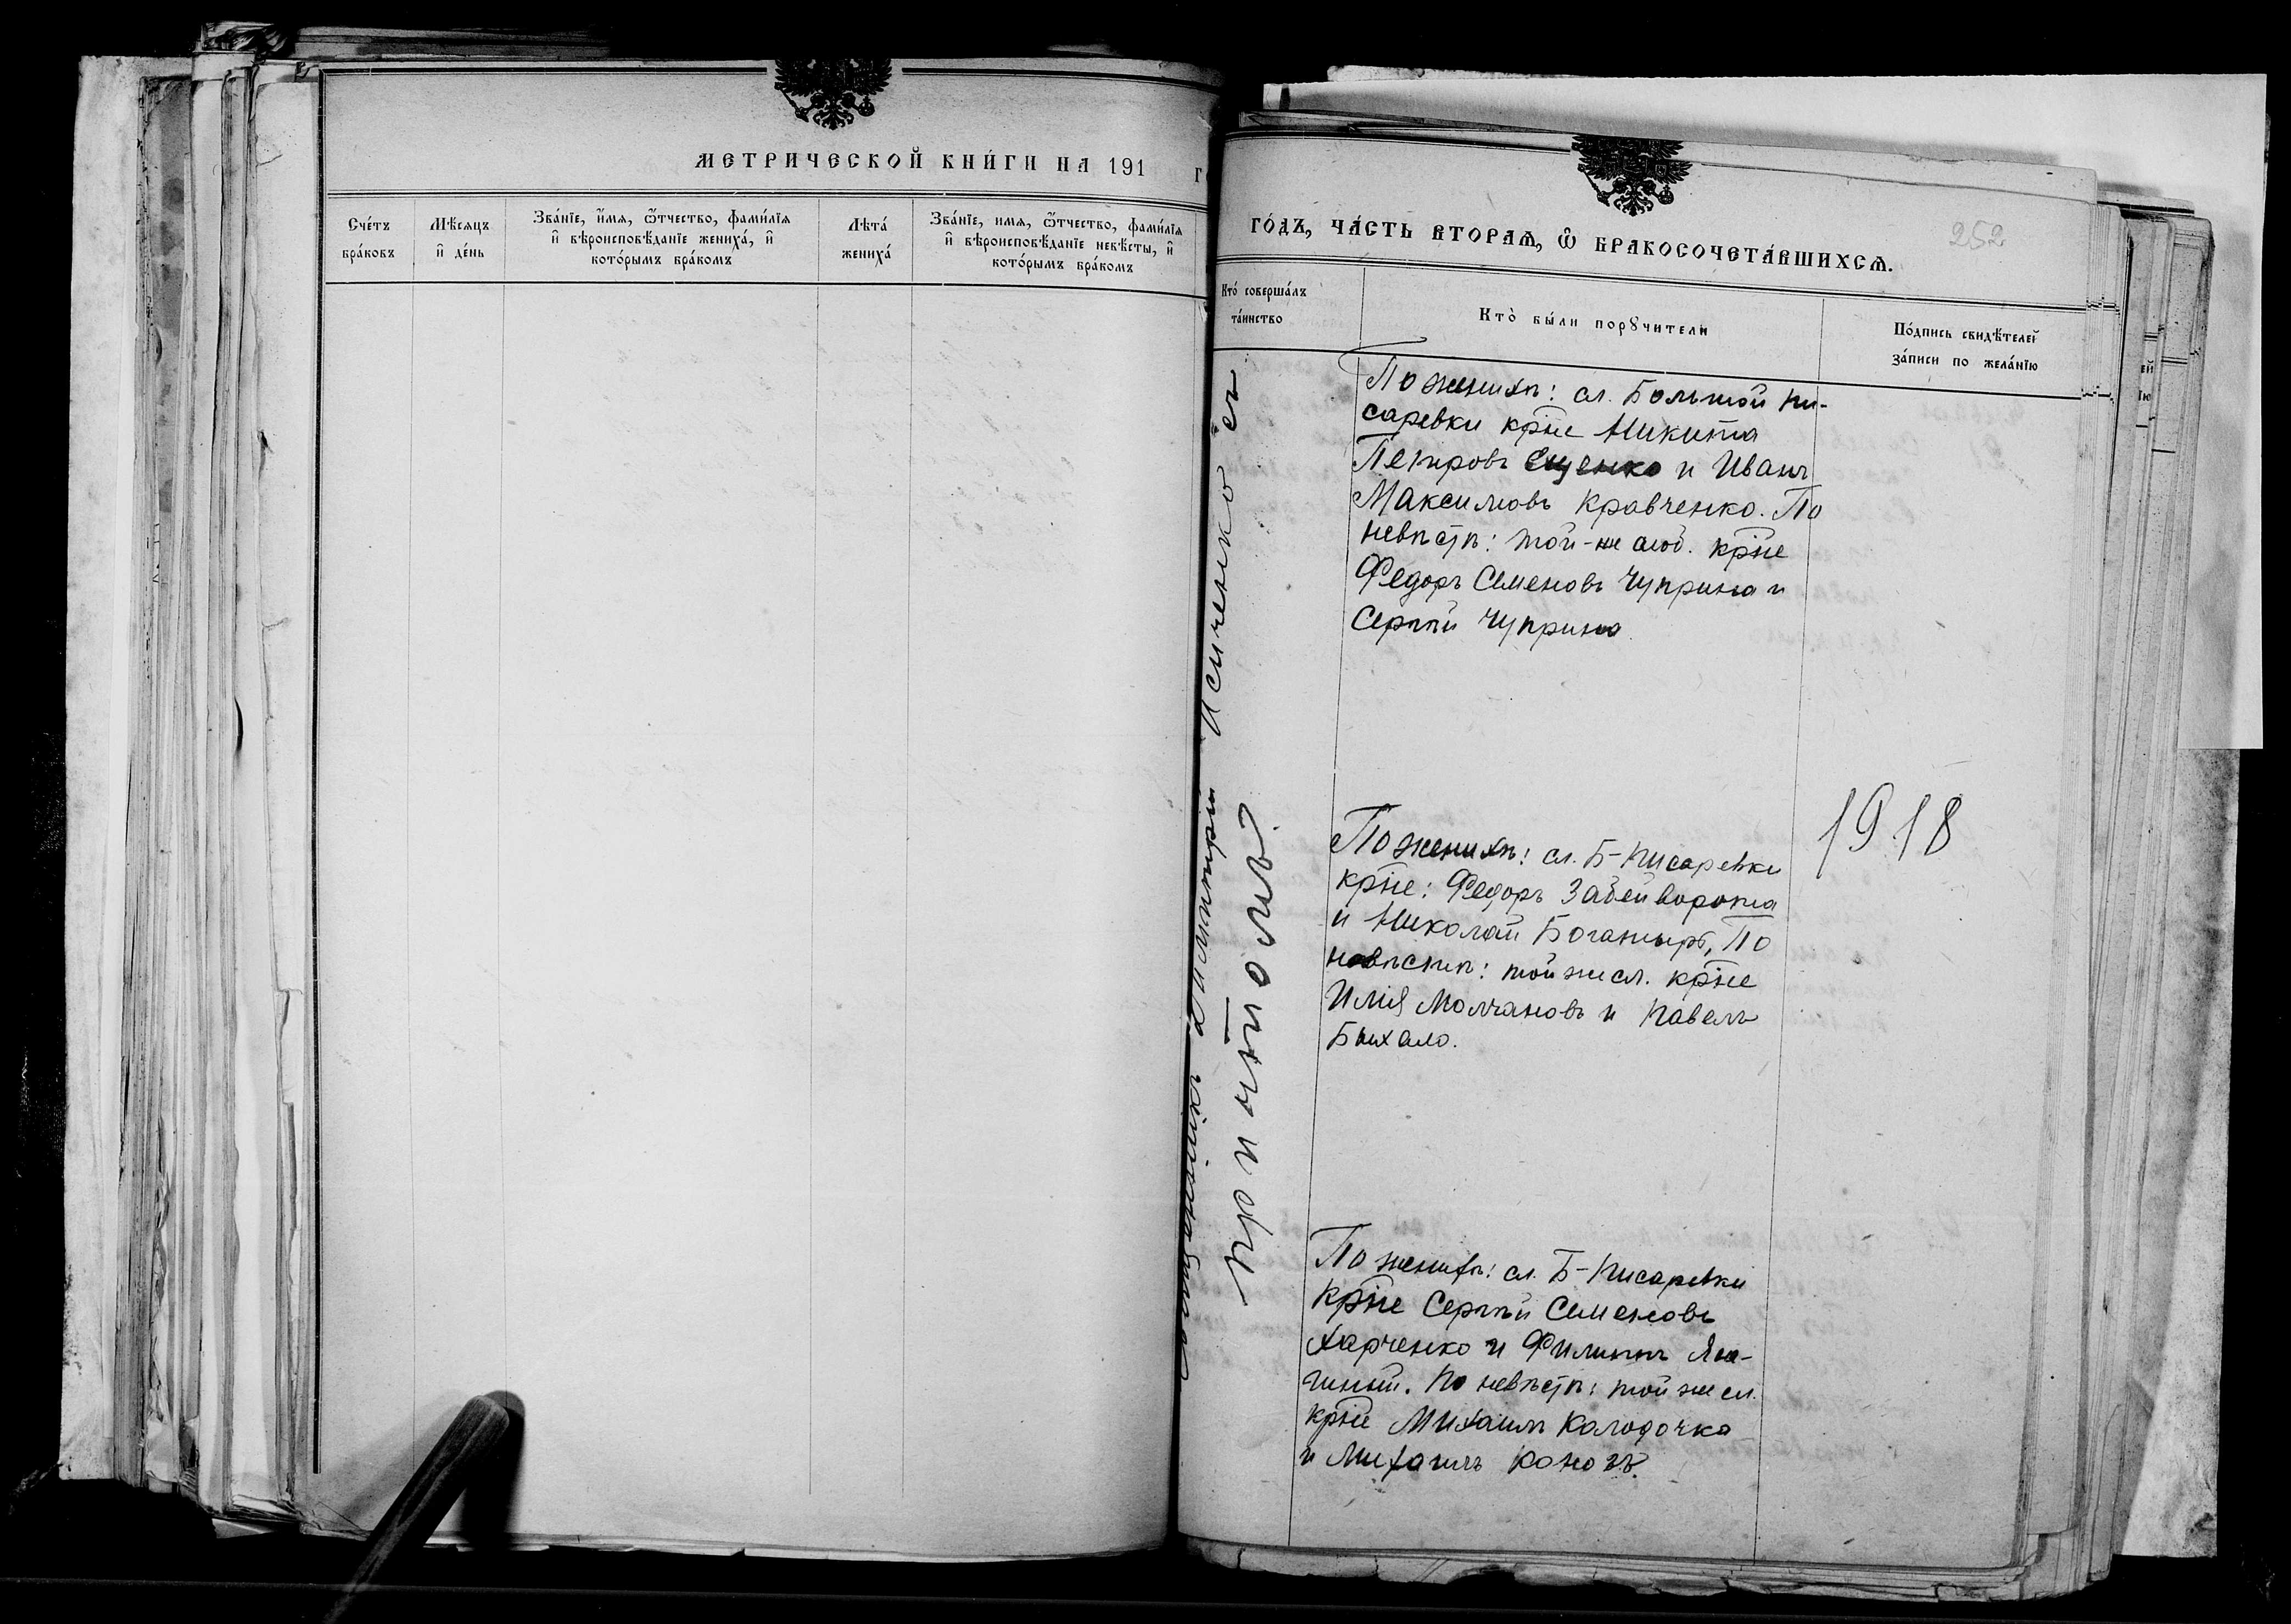 МЕТРИЧЕСКОЙ КНИ́ГИ НА 191
Сче́тъ бра́ковъ
Мѣ́сяцъ и҆ де́нь
Зва́нїе, и҆́мя, ѻ҆́тчество, фами́лїя и҆ вѣроисповѣ́данїе жениха̀, и҆ кото́рымъ бра́комъ
Лѣта̀ жениха̀
Зва́нїе, имя, ѻ҆́тчество, фами́лїя и҆ вѣроисповѣ́данїе невѣ́сты, и҆ кото́рымъ бра́комъ
ГО́ДЪ, ЧА́СТЬ ВТОРАѦ, Ѽ БРАКОСОЧЕТА́ВШИХСѦ.
252
Кто́ соверша́лъ та́инство
Кто̀ бы́ли порꙋчители
По́дпись свидѣ́телей за́писи по жела́нїю
Димитрій Исиченко съ
причтомъ
По женихѣ: сл. Большой Пи-
саревки крне Никита
Петровъ Ещенко и Иванъ
Максимовъ Кравченко. По
невѣстѣ: той-же слоб. крне
Федоръ Семеновъ Чуприна и
Сергѣй Чуприна
По женихѣ: сл. Б-Писаревки
крне: Федоръ Забейворота
и Николай Богатырь, По
невѣстѣ: той же сл. крне
Илія Молчановъ и Павелъ
Быхало.
1918
По женихѣ: сл. Б-Писаревки
крне Сергѣй Семеновъ
Харченко и Филиппъ Яш-
чиный. По невѣстѣ: той же сл.
крне Михаилъ Колодочка
и Михаилъ